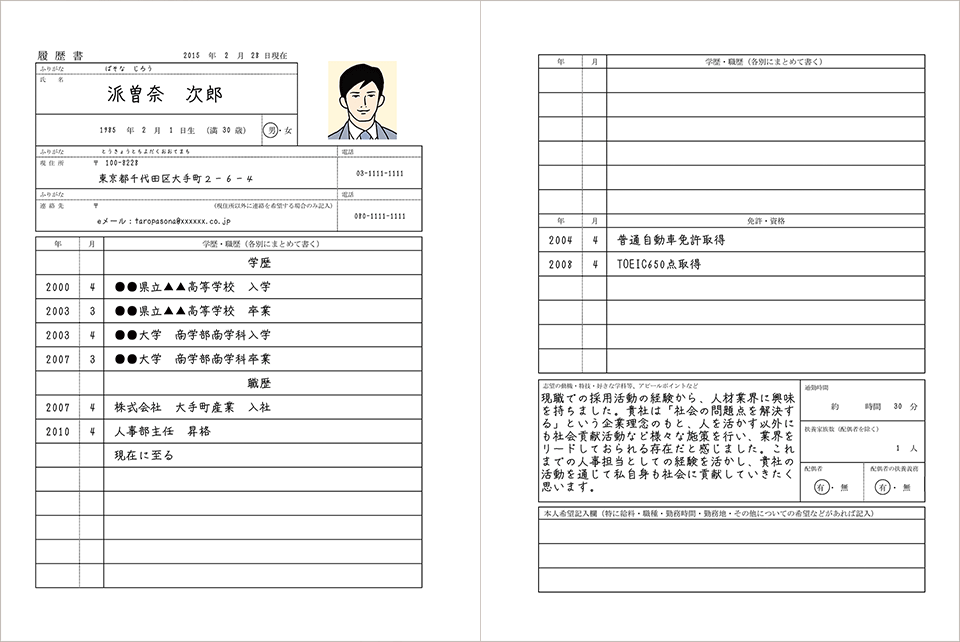 履 歴 書
2015 年 2 月 28 日現在
ふりがな ぱそな じろう
氏 名
派曽奈 次郎
1985 年 2 月 1 日生 (満 30 歳) 男・女
ふりがな とうきょうとちよだくおおてまち
電話
現住所 〒 100-8228
03-1111-1111
東京都千代田区大手町2-6-4
ふりがな
電話
連絡先 〒 (現住所以外に連絡を希望する場合のみ記入)
080-1111-1111
eメール：taropasona@xxxxxx.co.jp
年 月 学歴・職歴（各別にまとめて書く）
学歴
2000 4 ●●県立▲▲高等学校 入学
2003 3 ●●県立▲▲高等学校 卒業
2003 4 ●●大学 商学部商学科入学
2007 3 ●●大学 商学部商学科卒業
職歴
2007 4 株式会社 大手町産業 入社
2010 4 人事部主任 昇格
現在に至る
年 月 学歴・職歴（各別にまとめて書く）
年 月 免許・資格
2004 4 普通自動車免許取得
2008 4 TOEIC650点取得
志望の動機・特技・好きな学科等、アピールポイントなど
現職での採用活動の経験から、人材業界に興味
を持ちました。貴社は「社会の問題点を解決す
る」という企業理念のもと、人を活かす以外に
も社会貢献活動など様々な施策を行い、業界を
リードしておられる存在だと感じました。これ
までの人事担当としての経験を活かし、貴社の
活動を通じて私自身も社会に貢献していきたく
思います。
通勤時間
約 時間 30 分
扶養家族数（配偶者を除く）
1 人
配偶者
有・無
配偶者の扶養義務
有・無
本人希望記入欄（特に給料・職種・勤務時間・勤務地・その他についての希望などがあれば記入）